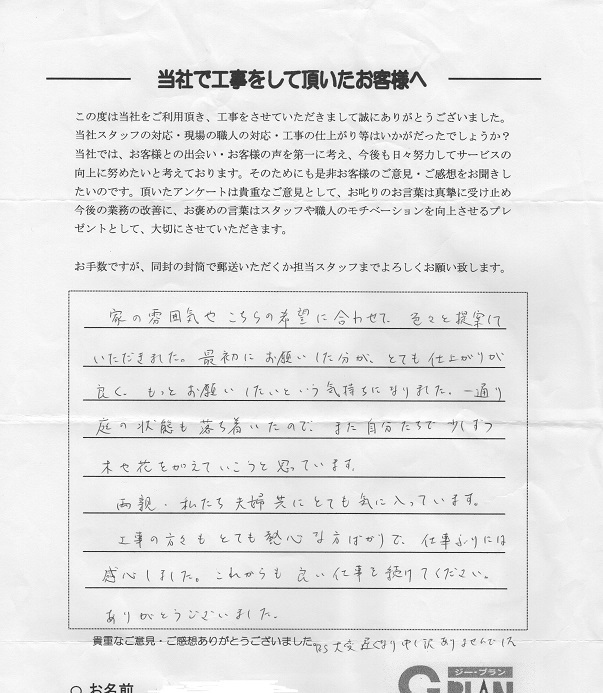 当社で工事をして頂いたお客様へ
この度は当社をご利用頂き、工事をさせていただきまして誠にありがとうございました。
当社スタッフの対応・現場の職人の対応・工事の仕上がり等はいかがだったでしょうか？
当社では、お客様との出会い・お客様の声を第一に考え、今後も日々努力してサービスの
向上に努めたいと考えております。そのためにも是非お客様のご意見・ご感想をお聞きし
たいのです。頂いたアンケートは貴重なご意見として、お叱りのお言葉は真摯に受け止め
今後の業務の改善に、お褒めの言葉はスタッフや職人のモチベーションを向上させるプレ
ゼントとして、大切にさせていただきます。
お手数ですが、同封の封筒で郵送いただくか担当スタッフまでよろしくお願い致します。
家の雰囲気やこちらの希望に合わせて、色々と提案して
いただきました。最初にお願いした分が、とても仕上がりが
良く、もっとお願いしたいという気持ちになりました。一通り
庭の状態も落ち着いたので、また自分たちで少しずつ
木や花をかえていこうと思っています。
両親・私たち夫婦共にとても気に入っています。
工事の方々もとても熱心な方ばかりで、仕事ぶりには
感心しました。これからも良い仕事を続けてください。
ありがとうございました。
貴重なご意見・ご感想ありがとうございました。
大変遅くなり申し訳ありませんでした
ジー・プラン
G PLAN
○ お名前